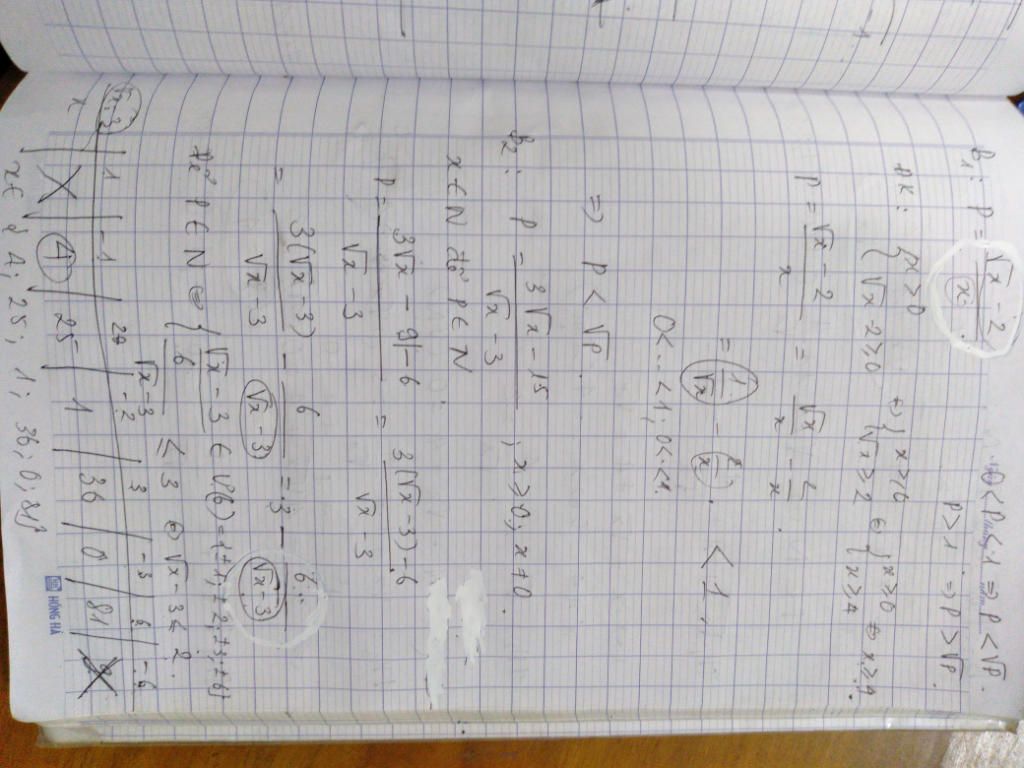 0 < P < 1 => P < √P.
P > 1 => P > √P.
B1: P = (√x - 2)/x
ĐK: { x > 0 { √x - 2 ≥ 0 ⇔ { x > 0 { √x ≥ 2 ⇔ { x ≥ 0 { x ≥ 4 ⇔ x ≥ 4
P = (√x - 2)/x = √x/x - 2/x .
= 1/√x - 2/x . < 1.
0 < .. < 1; 0 < . < 1.
=> P < √P.
B2: P = (3√x - 15)/(√x - 3) ; x ≥ 0; x ≠ 0.
x ∈ N để P ∈ N
P = (3√x - 9 - 6)/(√x - 3) = (3(√x - 3) - 6)/(√x - 3)
= 3(√x - 3)/(√x - 3) - 6/(√x - 3) = 3 - 6/(√x - 3)
Để P ∈ N ⇔ { √x - 3 ∈ Ư(6) = {±1; ±2; ±3; ±6}
6/(√x - 3) ≤ 3 ⇔ √x - 3 ≤ 2.
√x - 3 | 1 | -1 | 2 | -2 | 3 | -3 | 6 | -6
x | 4 | 25 | 1 | 36 | 0 | 81
x ∈ { 4; 25; 1; 36; 0; 81}
HỒNG HÀ